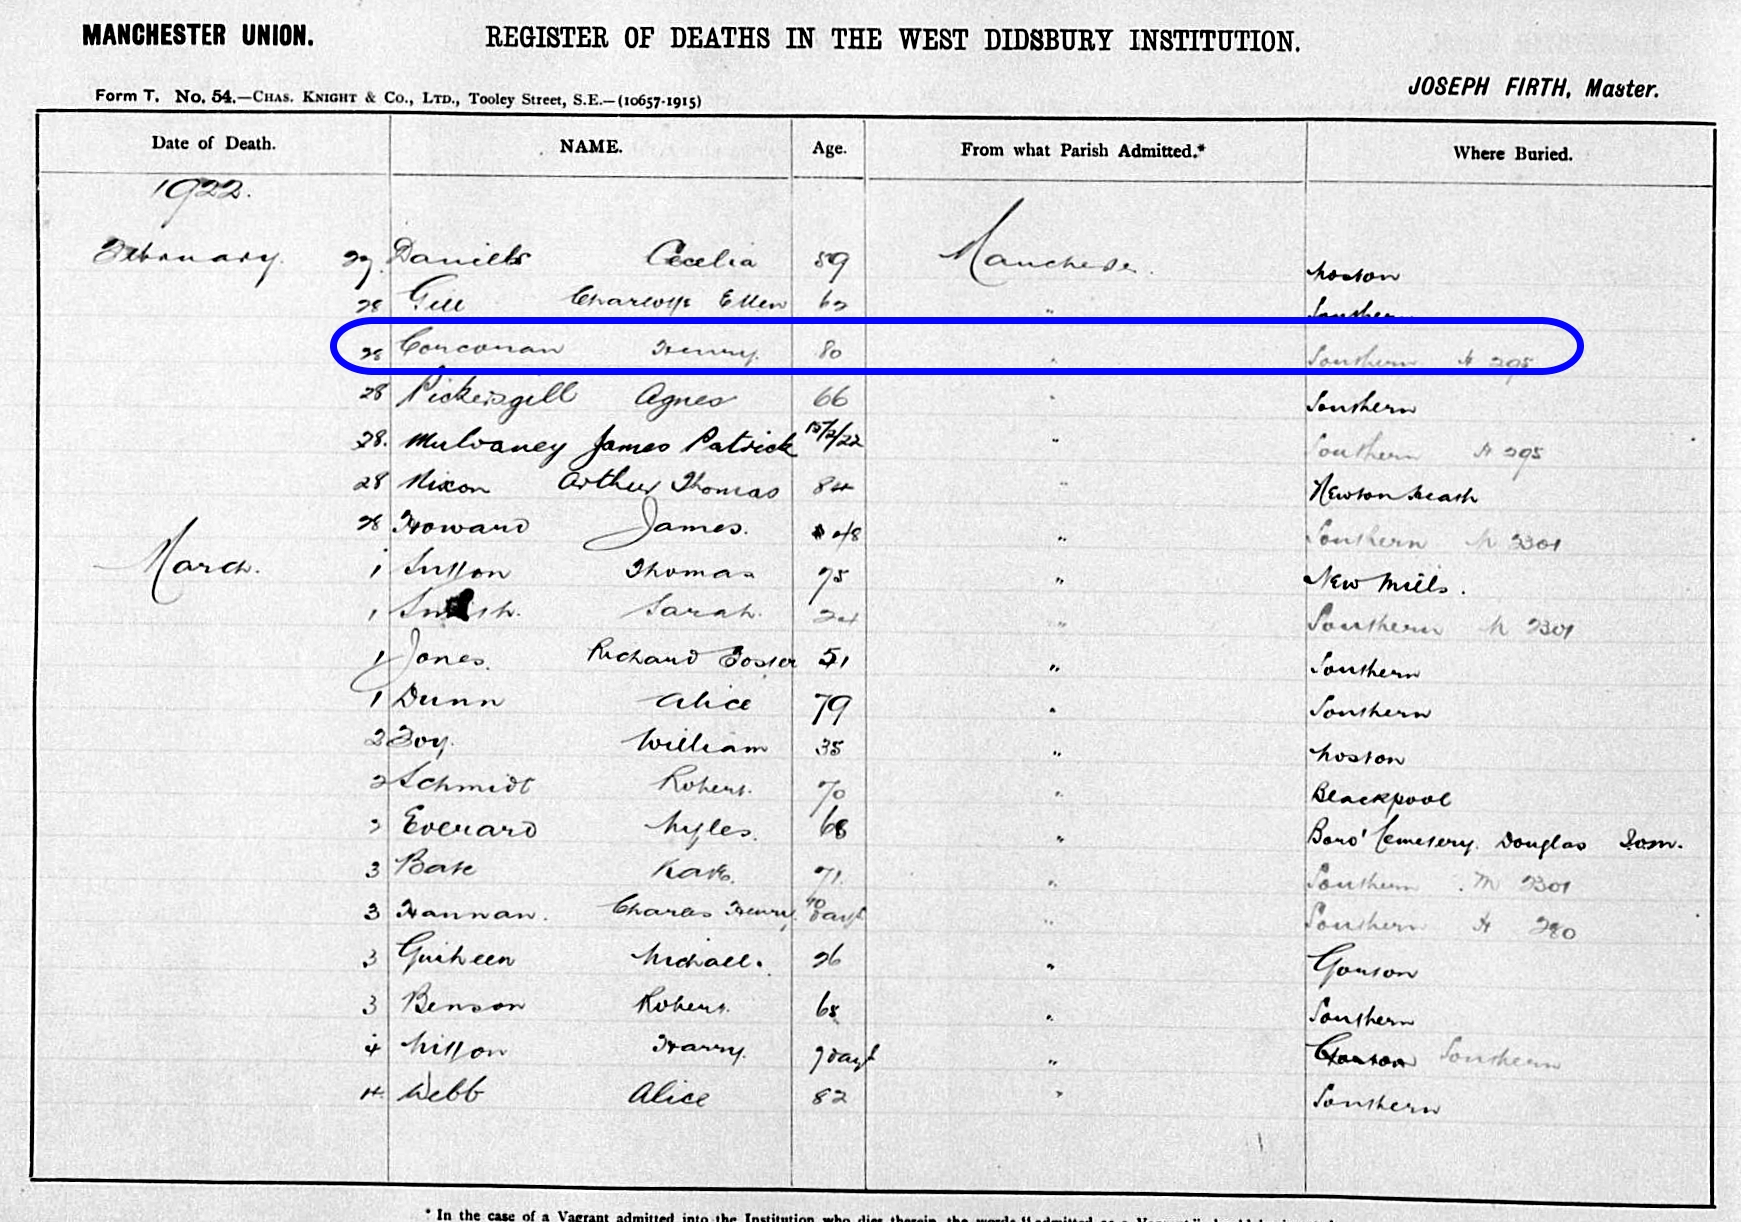 MANCHESTER UNION.
REGISTER OF DEATHS IN THE WEST DIDSBURY INSTITUTION.
Form T. No. 54.—CHAS. KNIGHT & CO., LTD., Tooley Street, S.E.—(10657-1915)
JOSEPH FIRTH, Master.
Date of Death. NAME. Age. From what Parish Admitted.* Where Buried.
1922.
February 27. Daniels Cecelia 59 Manchester. Moston
28 Gill Charlotte Ellen 62 " Southern
28 Corcoran Henry. 80 " Southern H 295
28 Pickersgill Agnes 66 " Southern
28. Mulvaney James Patrick 15/2/22 " Southern H 295
28 Nixon Arthur Thomas 84 " Newton Heath
28 Howard James. 48 " Southern M 2301
March. 1 Sutton Thomas 75 " New Mills.
1 Smith. Sarah. 24 " Southern M 2301
1 Jones. Richard Foster 51 " Southern
1 Dunn Alice 79 " Southern
2 Foy. William 35 " Moston
2 Schmidt Robert. 70 " Blackpool
2 Everard Myles. 68 " Boro' Cemetery. Douglas I.o.m.
3 Bate Kate. 71. " Southern M 2301
3 Hannan. Charles Henry. 10 days " Southern H 280
3 Guiheen Michael. 26 " Gorton
3 Benson Robert. 68 " Southern
4 Harry. 9 days " Gorton Southern
4. Webb Alice 82 " Southern
* In the case of a Vagrant admitted into the Institution who dies therein, the words "admitted as a Vagrant"